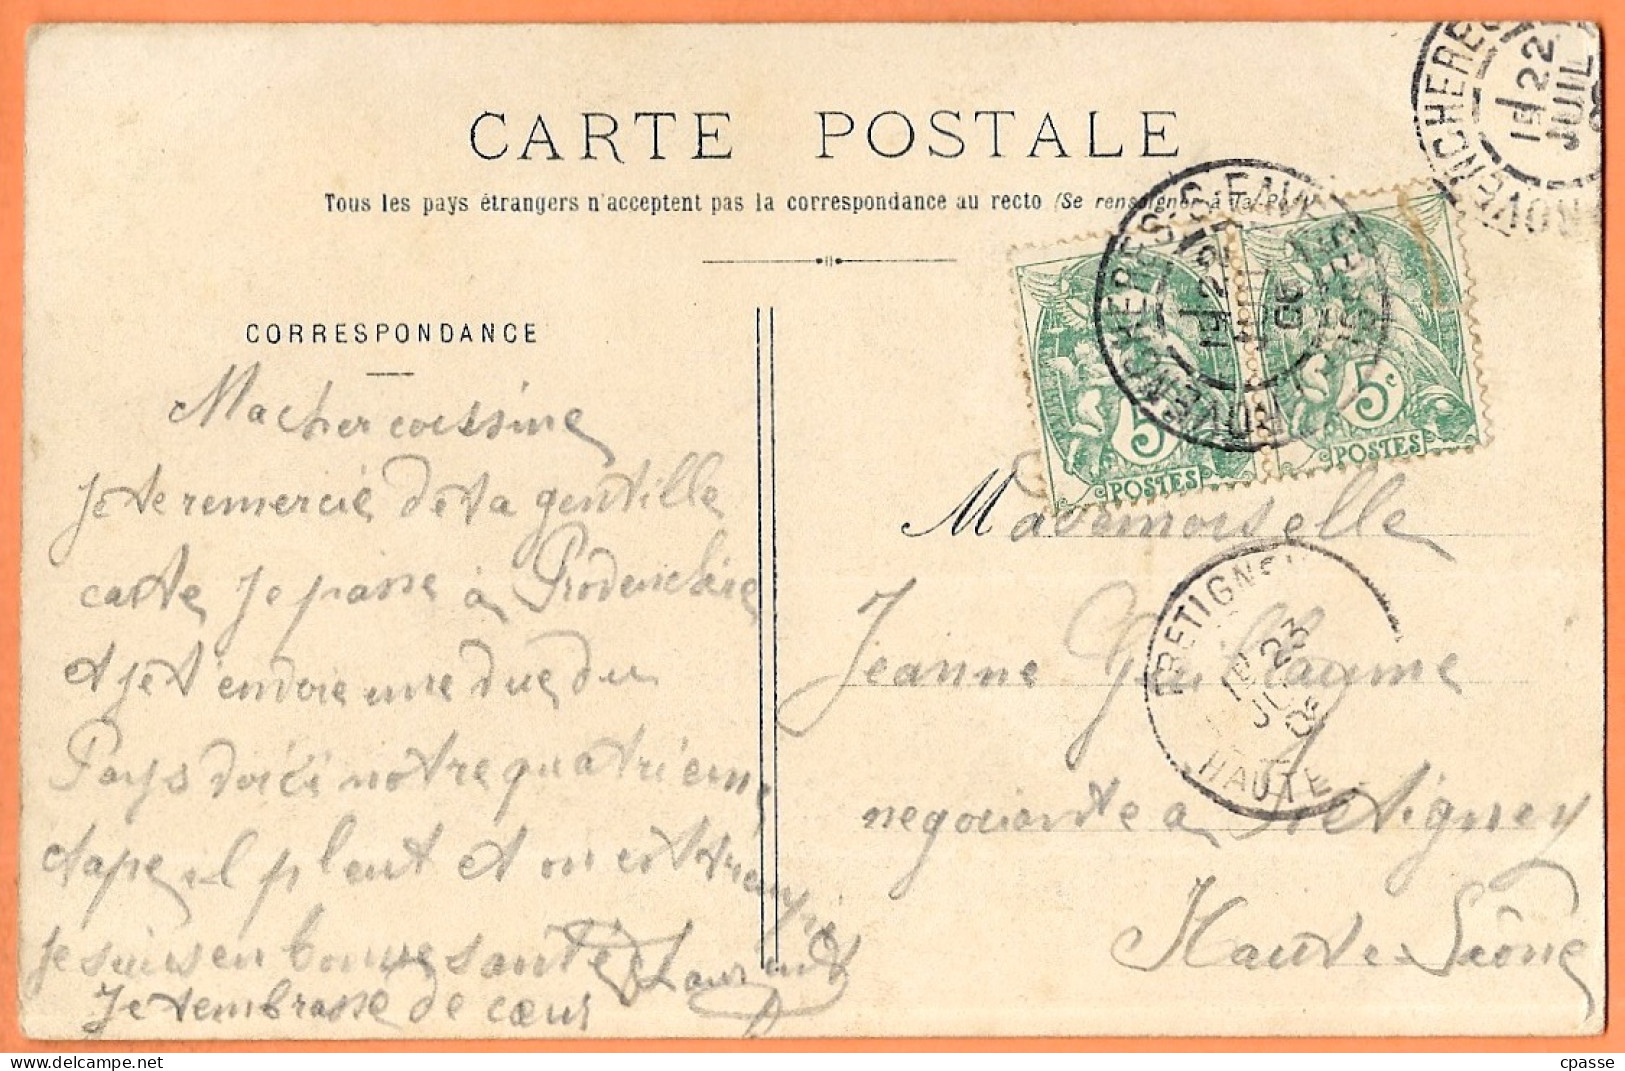 CARTE POSTALE
Tous les pays étrangers n'acceptent pas la correspondance au recto (Se renseigner à la Poste)
CORRESPONDANCE
Ma cher coussine
je te remercie de ta gentille
carte je passe à
et je t'envoie une vue du
Pays voici notre quatrièm
etape il pleut et on est trempé
je suis en bonne santé Laurent
Je t'embrasse de cœur
5c
POSTES
5c
POSTES
19
22
JUIL
ROUVENCHERES
19
22
FRETIGNEY
19
23
HAUTE
Mademoiselle
Jeanne Guillaume
negociante a Fretigney
Haute-Saône
cpasse